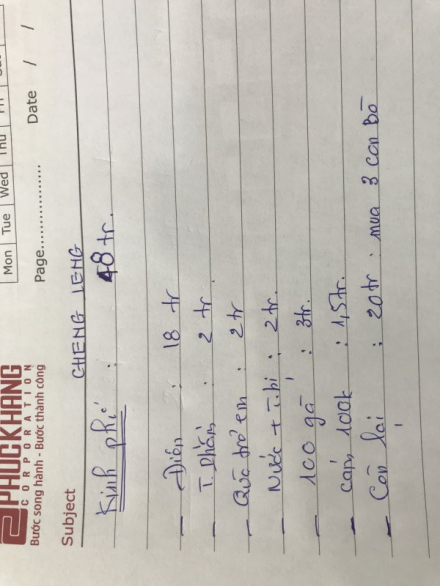 Mon Tue Wed Thu Fri
PHUCKHANG
CORPORATION
Bước song hành - Bước thành công
Page............... Date / /
Subject CHENG LENG
Kinh phí : 48 tr.
- Điện : 18 tr
- T. Phẩm : 2 tr.
- Quà trẻ em : 2 tr
- Nước + T. bị : 2 tr.
- 100 gà : 3 tr.
- cáp, 100k : 1,5 tr.
- Còn lại : 20 tr. mua 3 con Bò